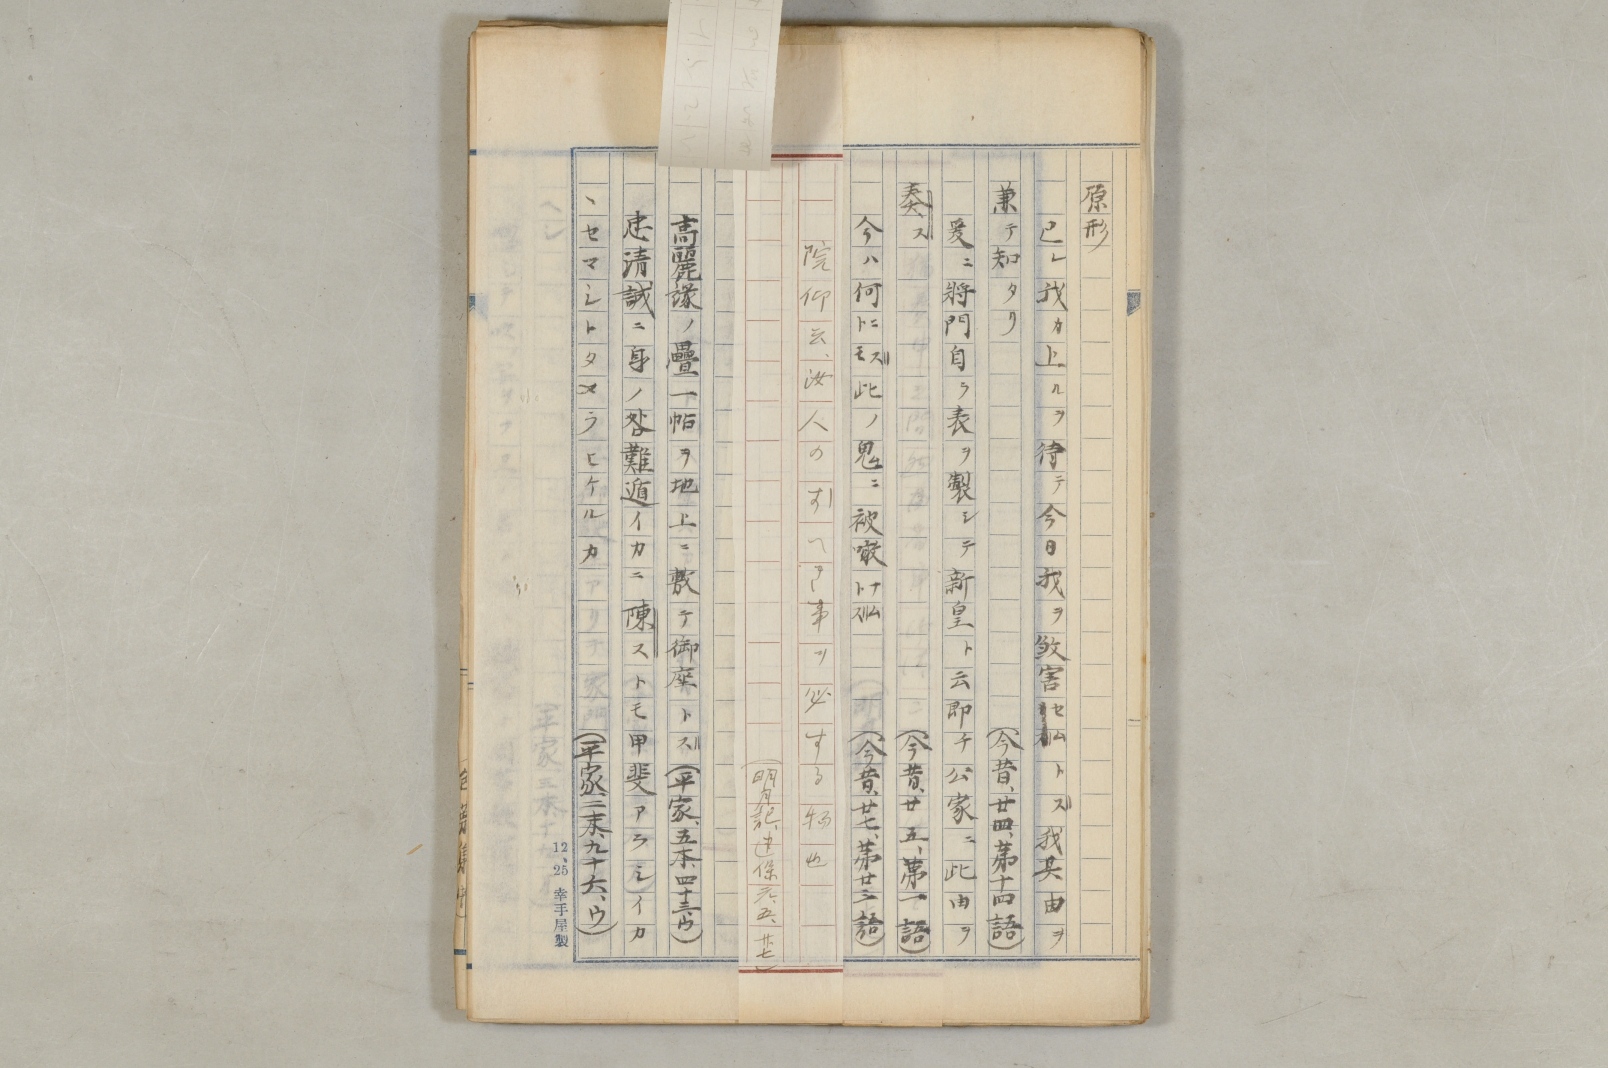 原形
已レ我カ上ルヲ待テ今日我ヲ煞害セムトズ我其由ヲ
兼テ知タリ(今昔、廿四、第十四語)
爰ニ將門自ラ表ヲ製シテ新皇ト云即チ公家ニ此由ヲ
奏ス(今昔、廿五、第一語)
今ハ何ニモ此ノ鬼ニ被噉ナムトス(今昔、廿七、第廿三語)
院仰云、汝人の引へき事ヲ必する物也
(明月記、建保元、五、廿七)
高麗縁ノ疊一帖ヲ地上ニ敷テ御座トス(平家、五本、四十三、ウ)
忠清誠ニ身ノ咎難遁イカニ陳ストモ甲斐アラシイカ
ヽセマシトタメラヒケルカ(平家、二末、九十六、ウ)
12、25 幸手屋製